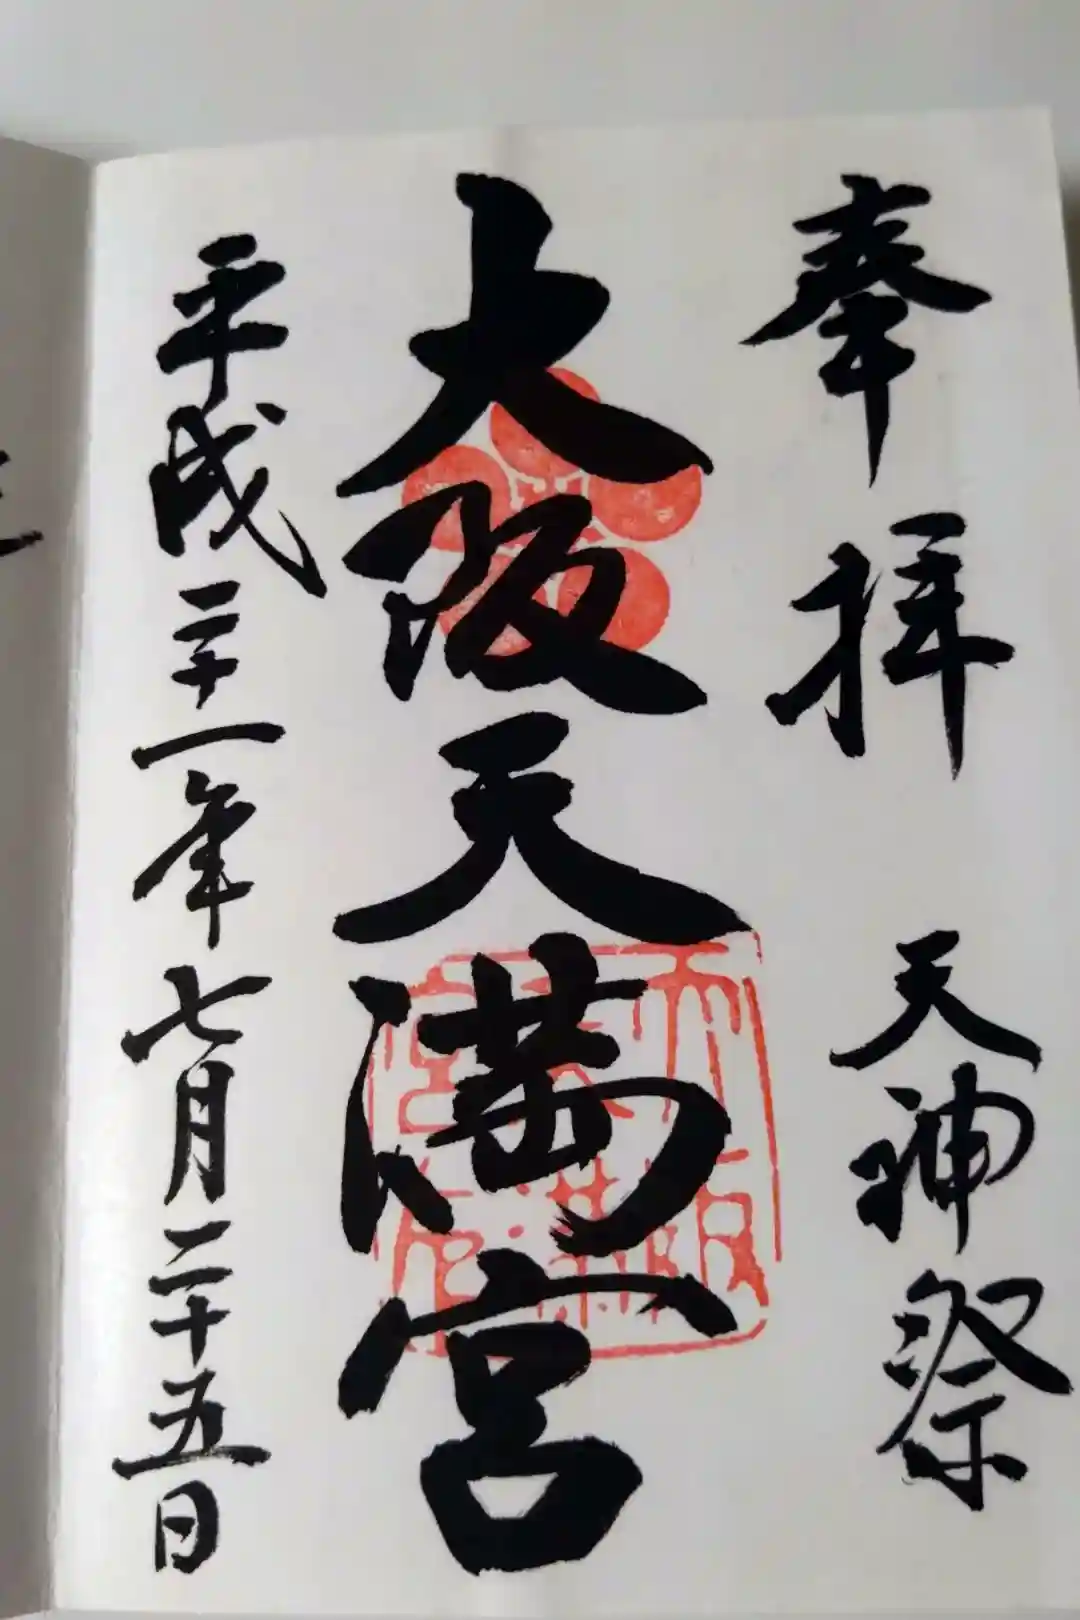 奉拝　天神祭
大阪天満宮
平成二十一年七月二十五日